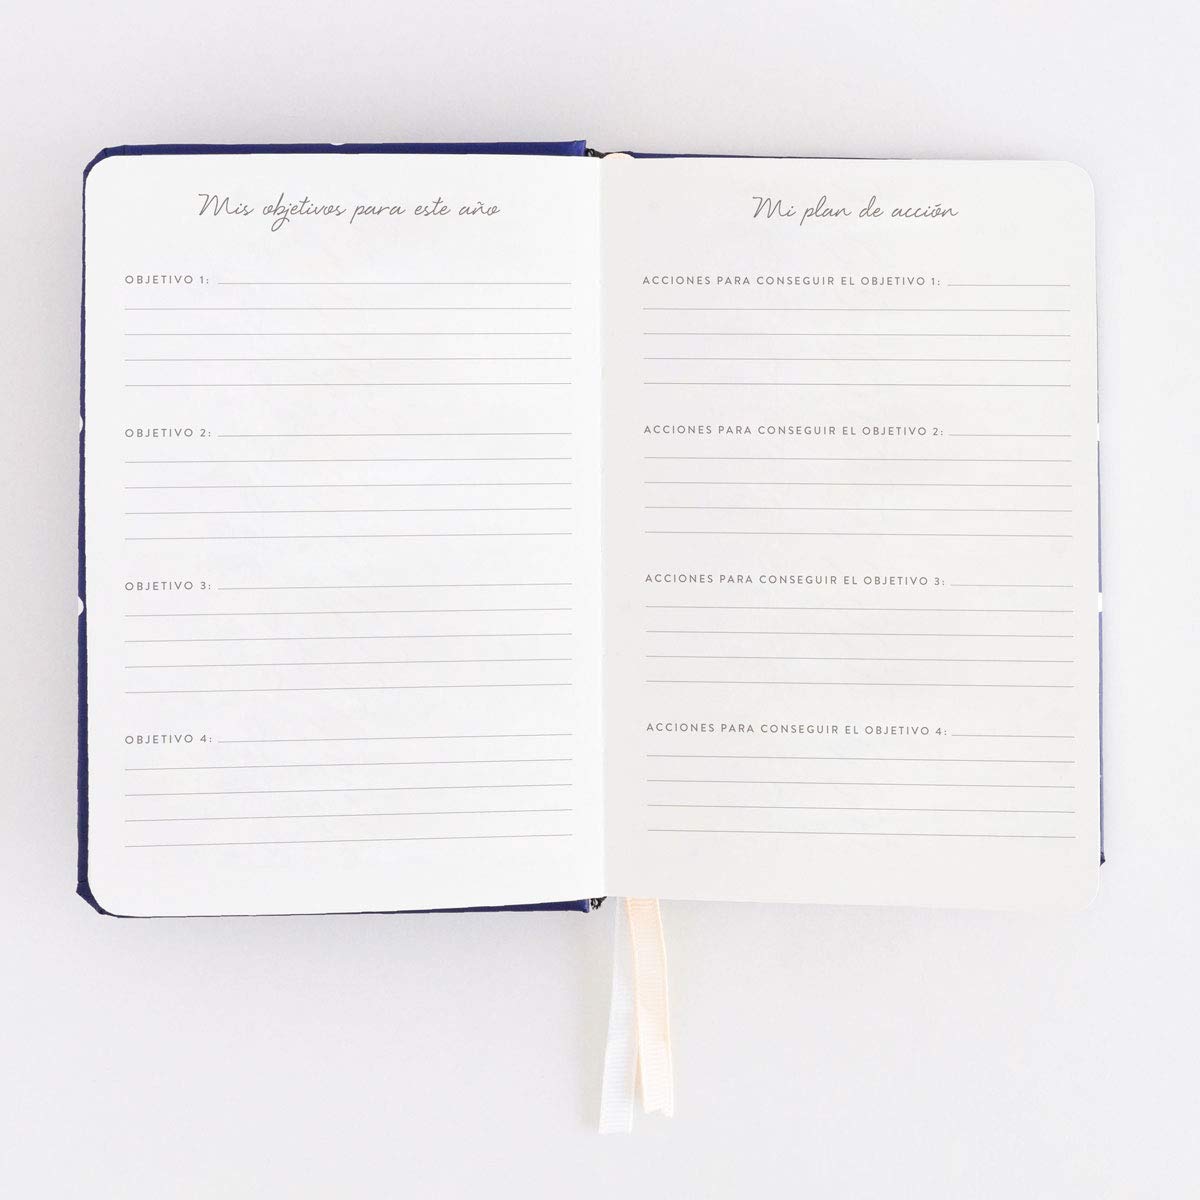 Mis objetivos para este año
OBJETIVO 1:
OBJETIVO 2:
OBJETIVO 3:
OBJETIVO 4:
Mi plan de acción
ACCIONES PARA CONSEGUIR EL OBJETIVO 1:
ACCIONES PARA CONSEGUIR EL OBJETIVO 2:
ACCIONES PARA CONSEGUIR EL OBJETIVO 3:
ACCIONES PARA CONSEGUIR EL OBJETIVO 4: